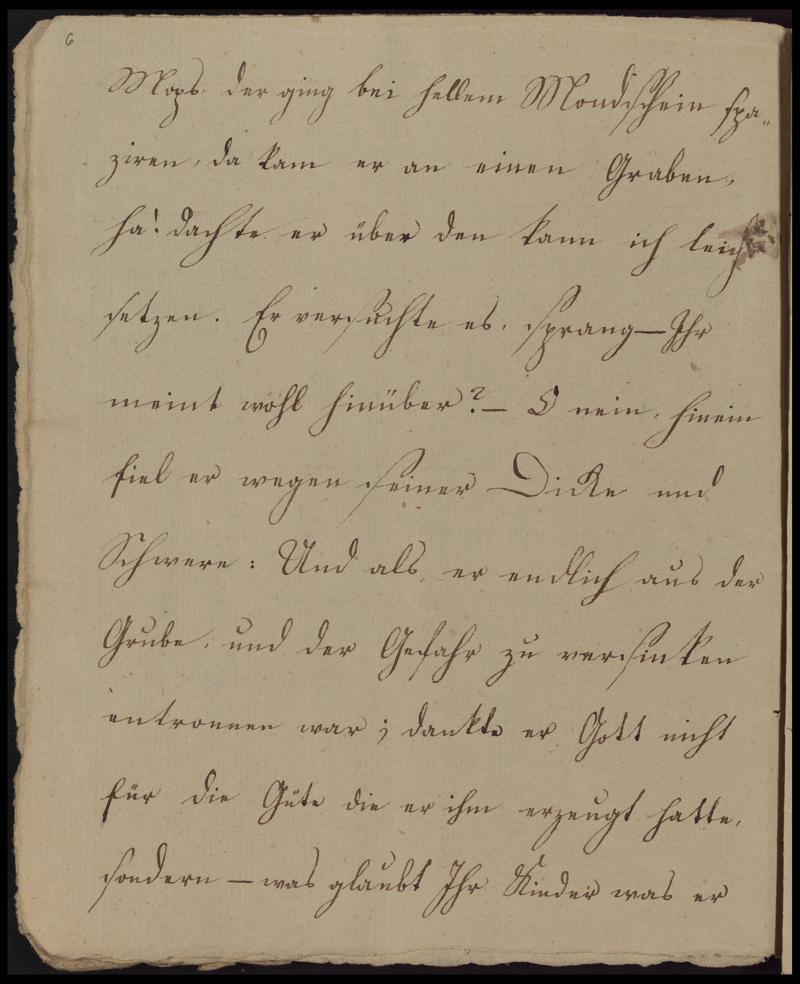 6
Mops. der ging bei hellem Mondschein spa„
ziren, da kam er an einen Graben,
ha! dachte er über den kann ich leicht
setzen. Er versuchte es, sprang—Ihr
meint wohl hinüber?— O nein, hinein
fiel er wegen seiner Dicke und
Schwere: Und als er endlich aus der
Grube, und der Gefahr zu versinken
entronnen war; dankte er Gott nicht
für die Güte die er ihm erzeugt hatte,
sondern — was glaubt Ihr Kinder was er